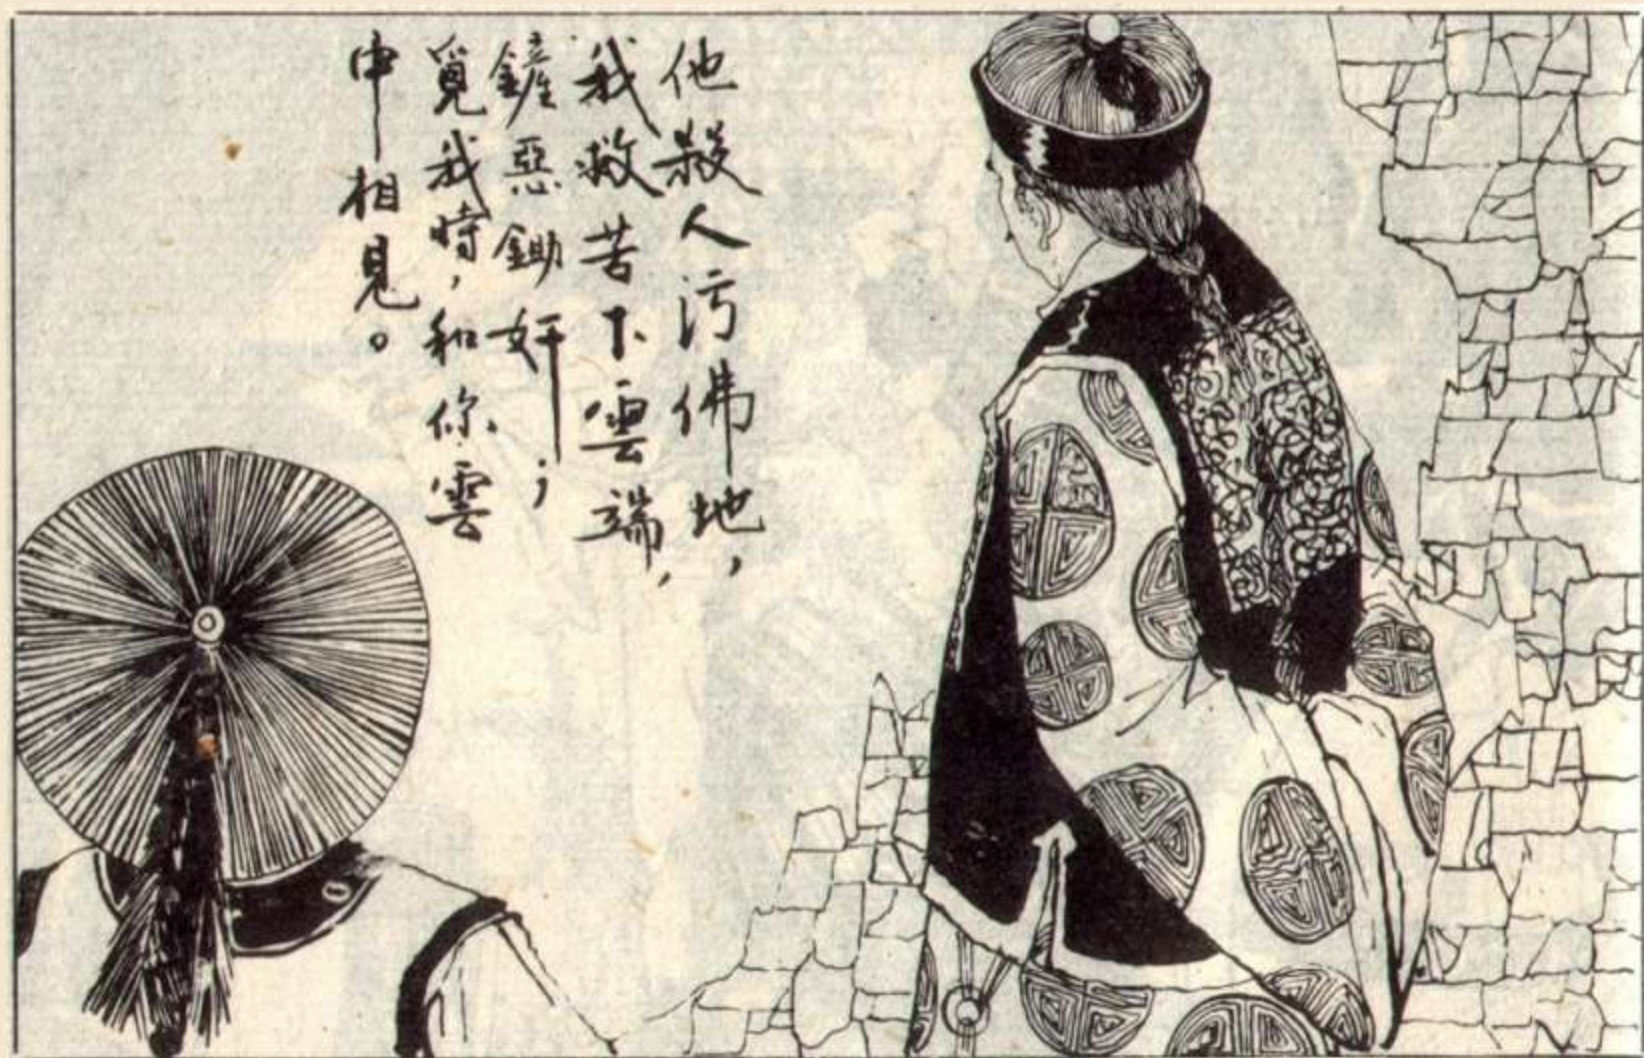 他殺人污佛地，
我救苦下雲端，
鏟惡鋤奸；
覓我時，和你雲
中相見。